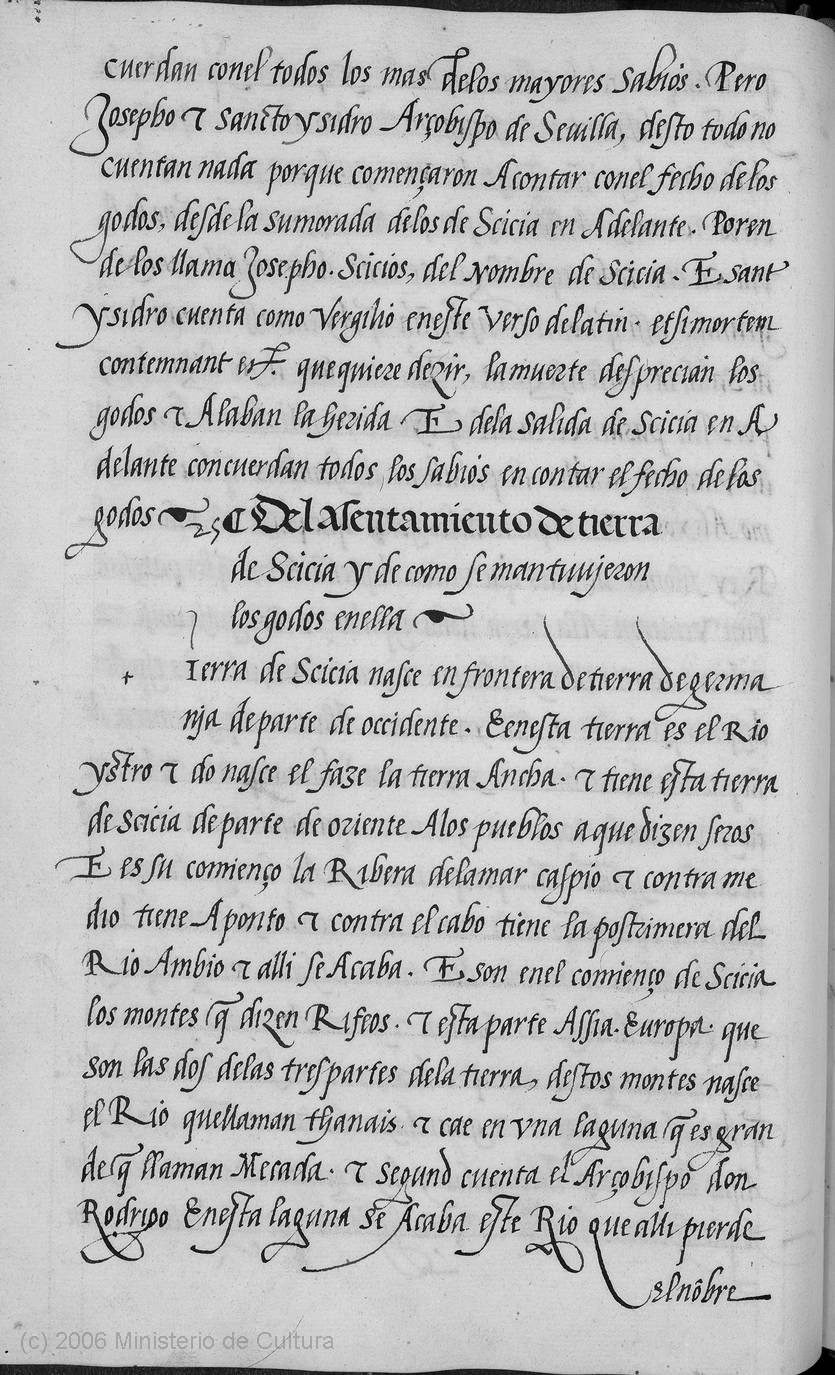 cuerdan conel todos los mas delos mayores sabios. Pero
Josepho τ sancto ysidro Arçobispo de Sevilla, desto todo no
cuentan nada porque començaron A contar conel fecho delos
godos, desde la su morada delos de Scicia en Adelante. Poren
de los llama Josepho. Scicios, del Nombre de Scicia. E sant
ysidro cuenta como Vergilio eneste verso delatin. etsimortem
contemnant quequiere dezir, lamuerte desprecian los
godos τ Alaban la herida E dela salida de Scicia en A
delante concuerdan todos los sabios en contar el fecho de los
godos ¶ Del asentamiento de tierra
de Scicia y de como se mantuvjeron
los godos enella
Ierra de Scicia nasce en frontera de tierra de germa
nja departe de occidente. E enesta tierra es el Rio
ystro τ do nasce el faze la tierra Ancha. τ tiene esta tierra
de Scicia departe de oriente Alos pueblos aque dizen seros
E es su comienço la Ribera delamar caspio τ contra me
dio tiene Aponto τ contra el cabo tiene la postrimera del
Rio Ambio τ alli se Acaba. E son enel comienço de Scicia
los montes q̃ dizen Rifeos. τ esta parte Assia. Europa. que
son las dos delas trespartes dela tierra, destos montes nasce
el Rio quellaman thanais. τ cae en vna laguna q̃ es gran
de q̃ llaman Mecada. τ segund cuenta el Arçobispo don
Rodrigo Enesta laguna se Acaba este Rio que alli pierde
el nõbre
(c) 2006 Ministerio de Cultura